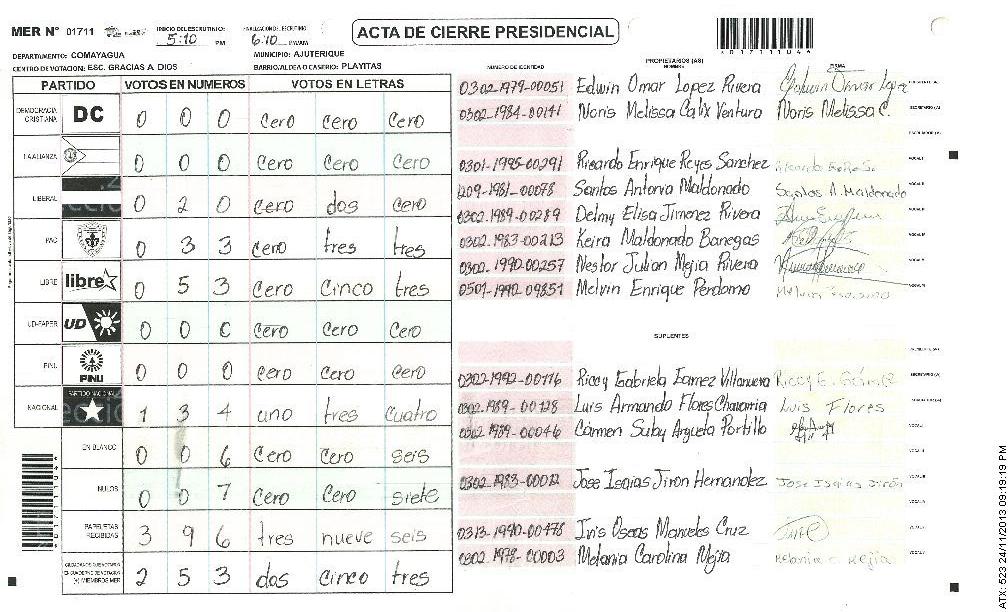 MER N° 01711
INICIO DEL ESCRUTINIO: 5:10 PM
6:10 PM/AM
ACTA DE CIERRE PRESIDENCIAL
01711104
DEPARTAMENTO: COMAYAGUA
MUNICIPIO: AJUTERIQUE
CENTRO DE VOTACION: ESC. GRACIAS A DIOS
BARRIO/ALDEA O CASERIO: PLAYITAS
PARTIDO VOTOS EN NUMEROS VOTOS EN LETRAS
DEMOCRACIA CRISTIANA DC 0 0 0 Cero Cero Cero
LA ALIANZA 0 0 0 Cero Cero Cero
LIBERAL 0 2 0 Cero dos Cero
PAC 0 3 3 Cero tres tres
LIBRE libre 0 5 3 Cero Cinco tres
UD-FAPER UD 0 0 0 Cero Cero Cero
PINU PINU 0 0 0 Cero Cero Cero
NACIONAL PARTIDO NACIONAL 1 3 4 uno tres Cuatro
EN BLANCO 0 0 6 Cero Cero seis
NULOS 0 0 7 Cero Cero siete
PAPELETAS RECIBIDAS 3 9 6 tres nueve seis
(+) MIEMBROS MER 2 5 3 dos Cinco tres
NUMERO DE IDENTIDAD PROPIETARIOS (AS) NOMBRE FIRMA
0302-1979-00051 Edwin Omar Lopez Rivera
0302-1984-00141 Noris Melissa Calix Venturo Noris Melissa C.
0301-1985-00291 Ricardo Enrique Reyes Sanchez
1209-1981-00078 Santos Antonia Maldonado Santos A. Maldonado
0302-1989-00289 Delmy Elisa Jimenez Rivera
0302-1983-00213 Keira Maldonado Banegas
0302-1990-00257 Nestor Julian Mejia Rivera
0501-1992-09851 Melvin Enrique Perdomo
SUPLENTES
0302-1992-00116 Riccy Gabriela Gamez Villanueva
0302-1989-00128 Luis Armando Flores Chavarria Luis Flores
0302-1989-00046 Carmen Suby Argueta Portillo
0302-1983-00012 Jose Isaias Jiron Hernandez Jose Isaias Jirón
0313-1990-00478
0302-1978-00003 Melania Carolina Mejia Melania C. Mejia
ATX: 523 24/11/2013 09:19:19 PM